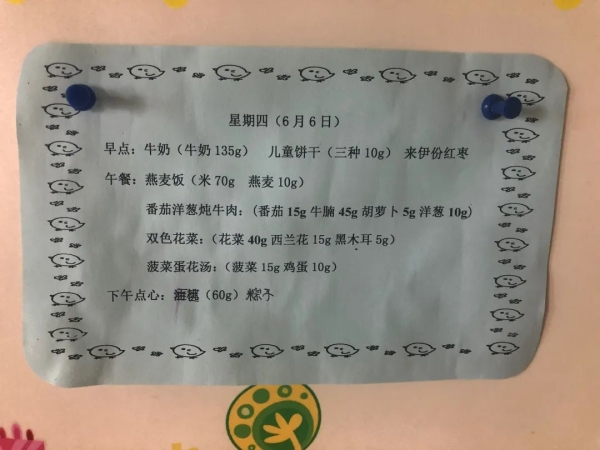 星期四（6月6日）
早点：牛奶（牛奶 135g） 儿童饼干（三种 10g） 来伊份红枣
午餐：燕麦饭（米 70g 燕麦 10g）
番茄洋葱炖牛肉：（番茄 15g 牛腩 45g 胡萝卜 5g 洋葱 10g）
双色花菜：（花菜 40g 西兰花 15g 黑木耳 5g）
菠菜蛋花汤：（菠菜 15g 鸡蛋 10g）
下午点心：油桃（60g）粽子